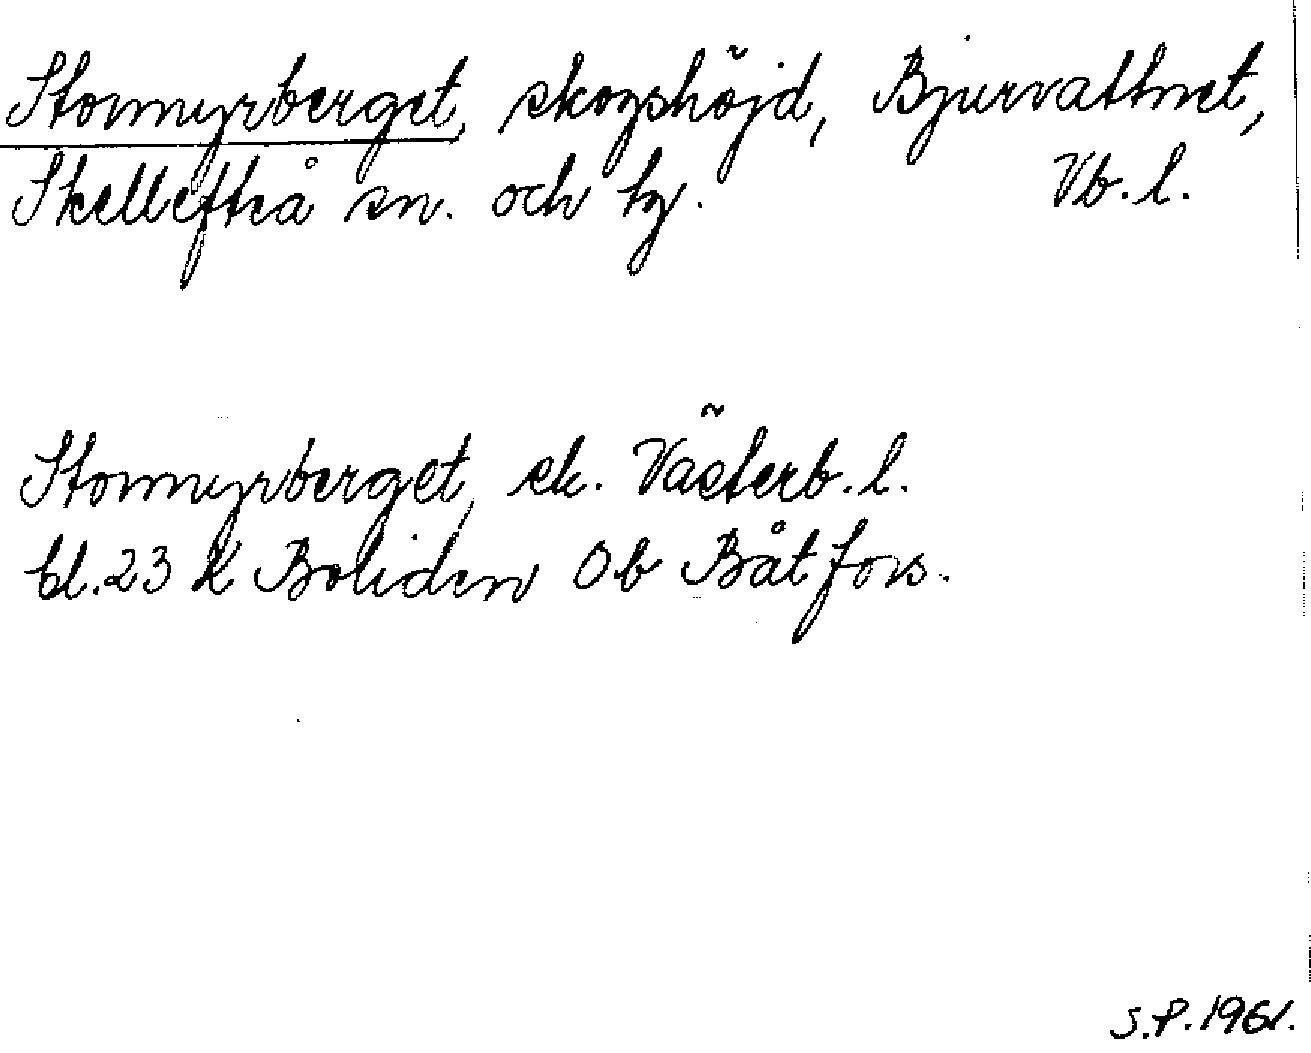 Stormyrberget, skogshöjd, Bjurvattnet,
Skellefteå sn. och tg. Vb. l.
Stormyrberget, ek. Västerb. l.
bl. 23 K Boliden Ob Båtfors.
S.P. 1961.